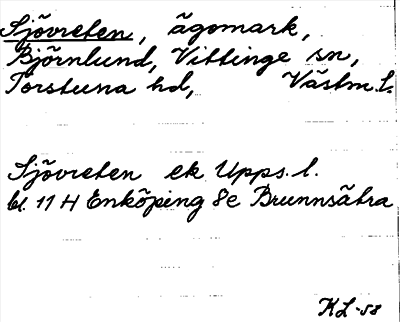 Sjövreten, ägomark,
Björnlund, Vittinge sn,
Torstuna hd, Västm.l.
Sjövreten ek Upps.l.
bl. 11 H Enköping 8e Brunnsätra
KL -58